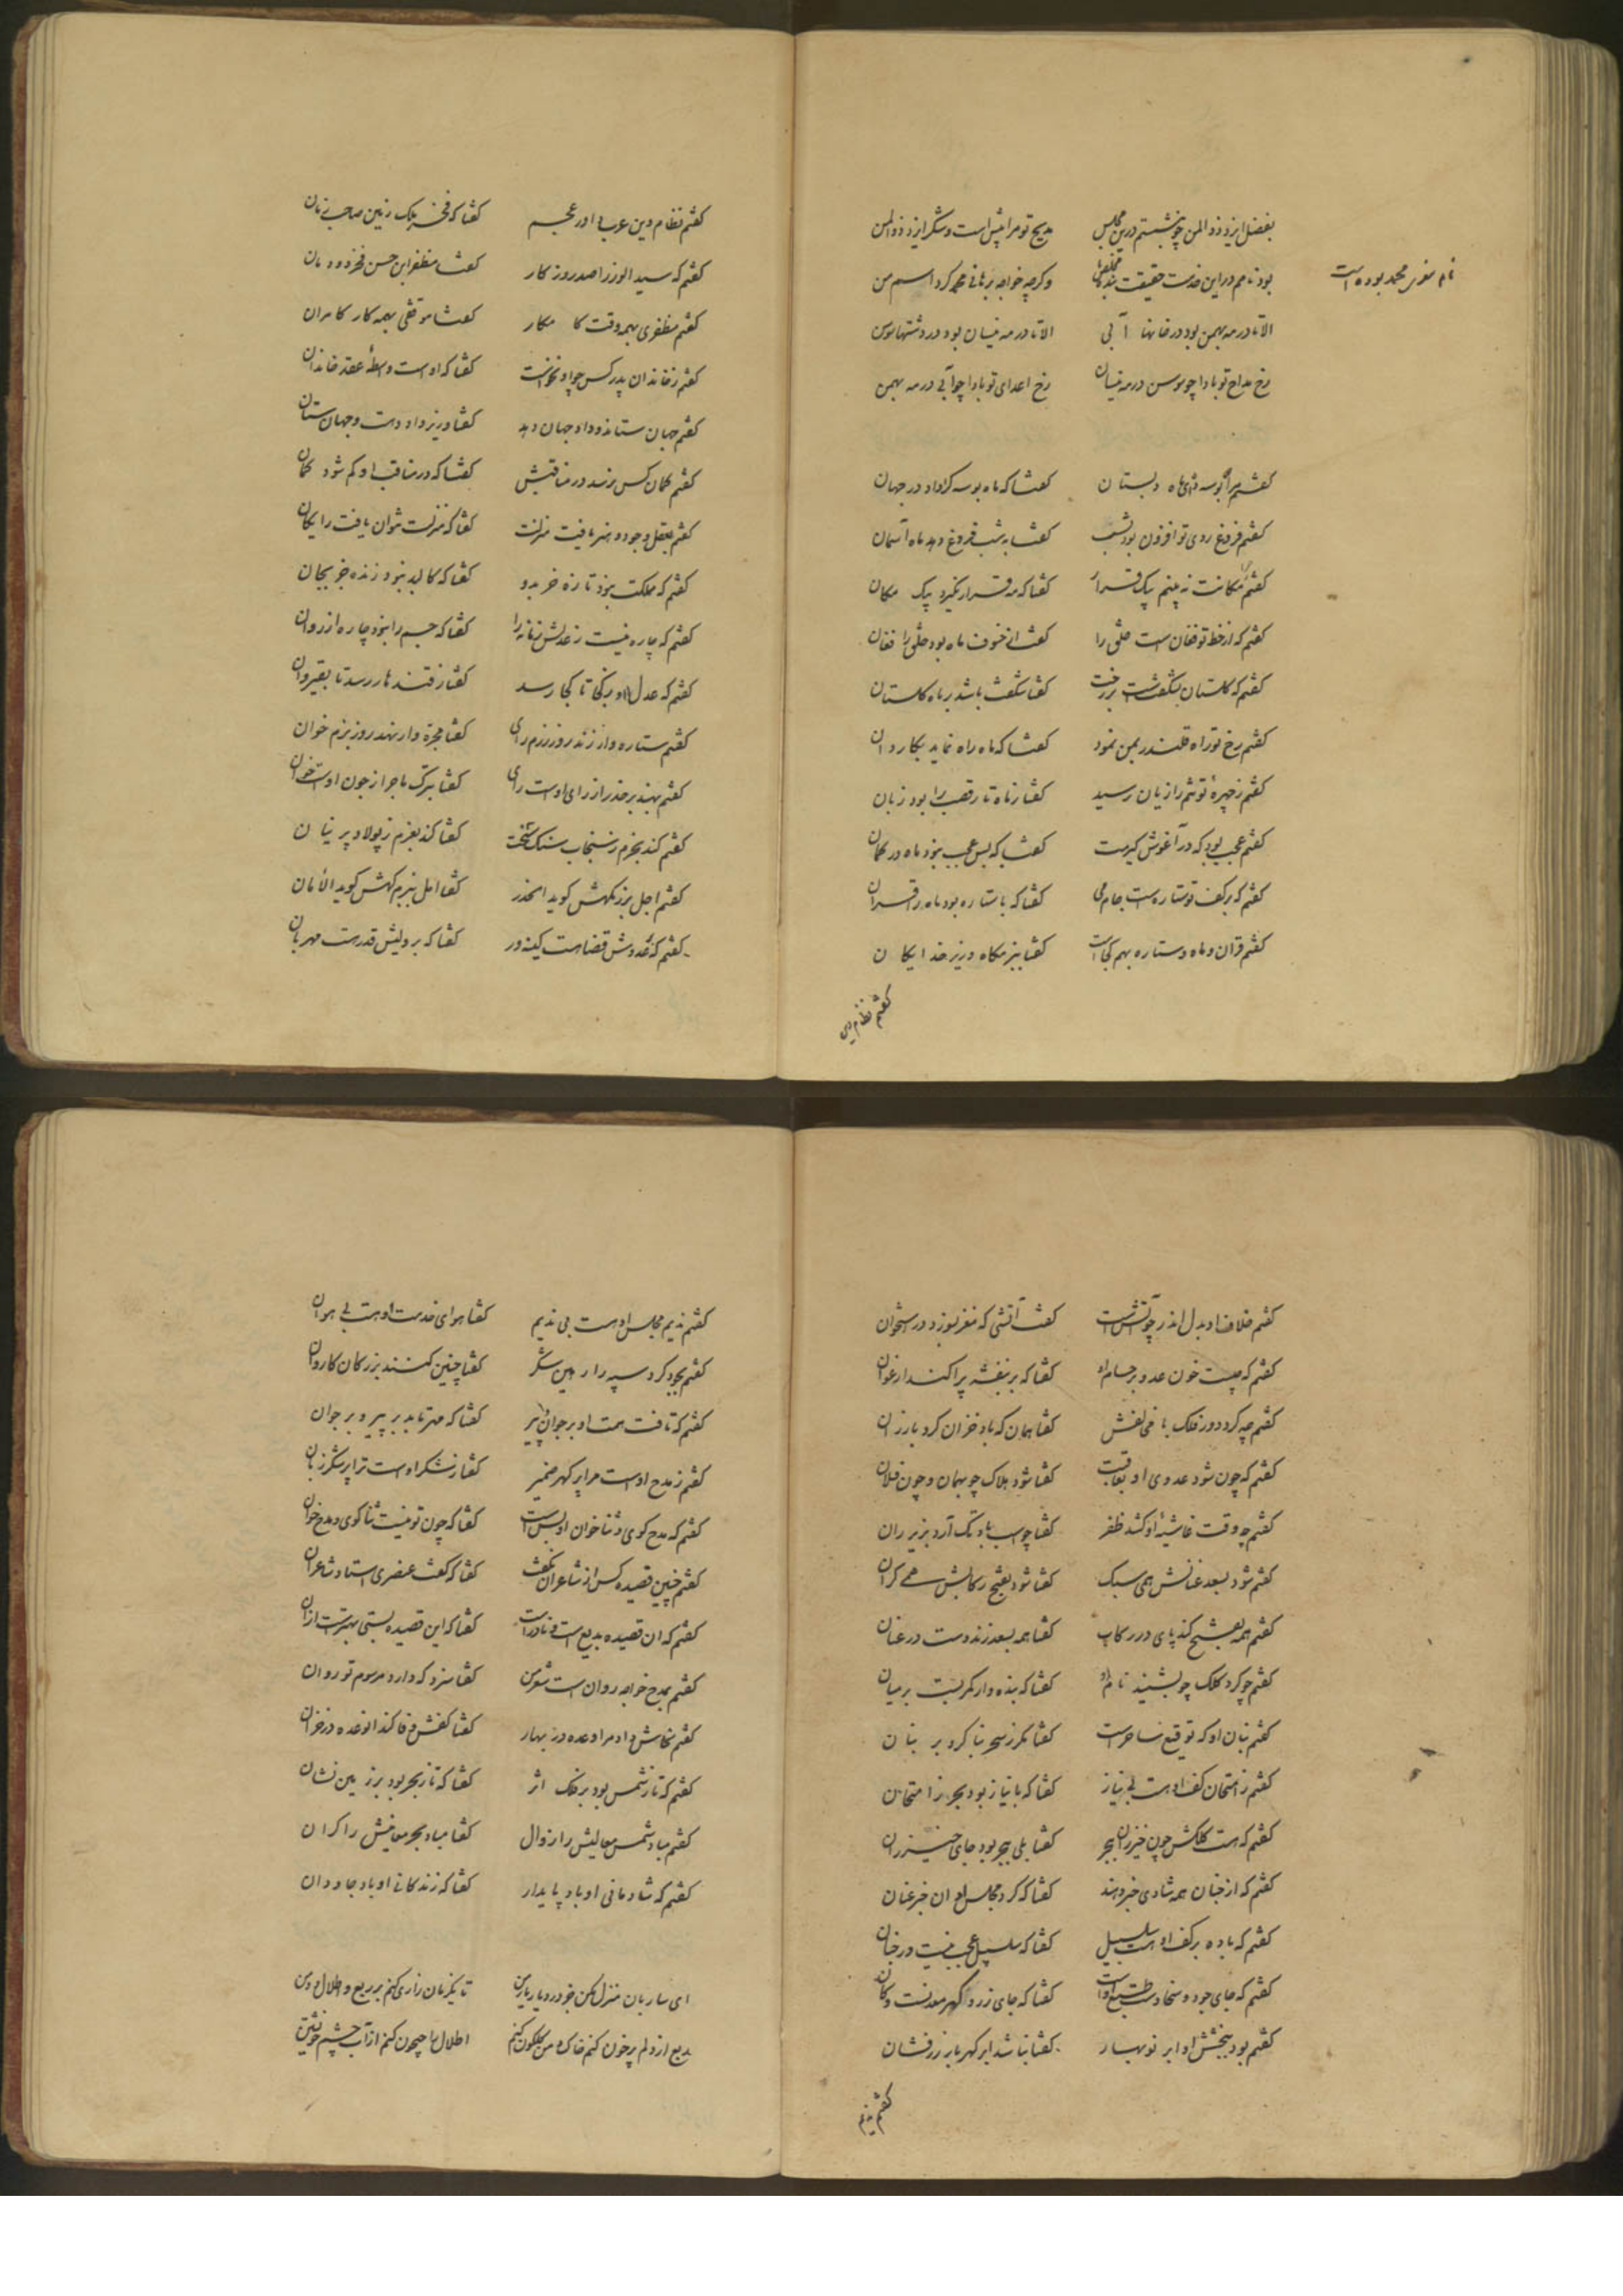 بفضل ایزد ذوالمن چو بنشستم درین مجلس مدیح تو مرا پیش است و شکر ایزد ذوالمن
بود نامم در این خدمت حقیقت بنده مخلص وگرچه خواجه برهانی محمد کرد اسم من
نام معزی محمد بوده است
الا تا در مه بهمن بود در خانها آبی الا تا در مه نیسان بود در دشتها سوسن
رخ مداح تو بادا چو سوسن در مه نیسان رخ اعدای تو بادا چو آبی در مه بهمن
گفتم مرا بوسه ده ای ماه دلستان گفتا که ماه بوسه کرا داد در جهان
گفتم فروغ روی تو افزون بود بشب گفتا به شب فروغ دهد ماه آسمان
گفتم بیک مکانت نه بینم بیک قرار گفتا که مه قرار نگیرد بیک مکان
گفتم که از خط تو فغان است خلق را گفتا از خسوف ماه بود خلق را فغان
گفتم که گلستان بشکفت بر رخت گفتا شگفت باشد بر ماه گلستان
گفتم رخ تو راه قلندر بمن نمود گفتا که ماه راه نماید بکاروان
گفتم ز چهره تو تنم را زیان رسید گفتا ز ماه تار قصب را بود زیان
گفتم عجب بود که در آغوش گیرمت گفتا که بس عجب نبود ماه در کمان
گفتم که بر کف تو ستاره‌ست جام می گفتا که با ستاره بود ماه را قران
گفتم قران و ماه و ستاره بهم کجاست گفتا ببزمگاه وزیر خدایگان
گفتم نظام دین
گفتم نظام دین عرب داور عجم گفتا که فخر ملک زمین صاحب زمان
گفتم که سید الوزرا صدر روزگار گفتا مظفر ابن حسن فخر دودمان
گفتم مظفری بهمه وقت کامکار گفتا موفقی بهمه کار کامران
گفتم ز خاندان پدر کس چو او نخاست گفتا که او است واسطهٔ عقد خاندان
گفتم جهان ستاند و داد جهان دهد گفتا وزیر داد ده است و جهان ستان
گفتم گمان کس نرسد در مناقبش گفتا که در مناقب او گم شود گمان
گفتم بعقل و جود و هنر یافت منزلت گفتا که منزلت نتوان یافت رایگان
گفتم که مملکت نبود تازه جز بدو گفتا که کالبد نبود زنده جز بجان
گفتم که چاره نیست ز عدلش زمانه را گفتا که جسم را نبود چاره از روان
گفتم که عدل او ز کجا تا کجا رسد گفتا ز قندهار رسد تا بقیروان
گفتم ستاره وار زند روز رزم رای گفتا مجره وار نهد روز بزم خوان
گفتم بهند بر حذر از رای اوست رای گفتا بترک ماجرا از جون اوست خان
گفتم کند بحزم ز سنجاب سنگ سخت گفتا کند بعزم ز پولاد پرنیان
گفتم اجل برزمگهش گوید الحذر گفتا امل ببزمگهش گوید الأمان
گفتم که بر عدوش قضاهست کینه ور گفتا که بر ولیش قدرست مهربان
گفتم خلاف او بدل اندر چو آتش است گفتا آتشی که مغز بسوزد در استخوان
گفتم که چیست خون عدو بر حسام او گفتا که بر بنفشه پراکنده ارغوان
گفتم چه کرد دور فلک با مخالفش گفتا همان که باد خزان کرد با رزان
گفتم که چون شود عدوی او بعاقبت گفتا شود هلاک چو بهمان و چون فلان
گفتم چه وقت غاشیهٔ او کشد ظفر گفتا چو اسب باد تک آرد بزیر ران
گفتم شود بسعد عنانش همی سبک گفتا شود بفتح رکابش همی گران
گفتم همه بفتح کند پای در رکاب گفتا همه بسعد زند دست در عنان
گفتم چو کرد کلک چو بشنید نام او گفتا که بنده وار کمر بست بر میان
گفتم بنان او گه توقیع ساحرست گفتا مگر ز سحر بنا کرد بر بنان
گفتم ز امتحان کف او هست بی نیاز گفتا که با نیاز بود بحر ز امتحان
گفتم که هست کلکش چون خیزران ببحر گفتا بلی ببحر بود جای خیزران
گفتم که از جنان همه شادی خبر دهند گفتا که کرد مجلس او ان خبر عنان
گفتم که باده بر کف او هست سلسبیل گفتا که سلسبیل عجب نیست در جنان
گفتم که جای جود و سخا دست و طبع اوست گفتا که جای زر و گهر معدنست و کان
گفتم بود ببخشش او ابر نوبهار گفتا نباشد ابر گهر بار زر فشان
گفتم ندیم
گفتم ندیم مجلس او هست بی ندیم گفتا هوای خدمت او هست بی هوان
گفتم بجود کرد سپه را رهین شکر گفتا چنین کنند بزرگان کاردان
گفتم که تافت همت او بر جوان و پیر گفتا که مهر تابد بر پیر و بر جوان
گفتم ز مدح اوست مرا پر گهر ضمیر گفتا ز شکر اوست ترا پر شکر زبان
گفتم که مدح گوی و ثنا خوان او بس است گفتا که چون تو نیست ثنا گوی و مدح خوان
گفتم چنین قصیده کس از شاعران نگفت گفتا که گفت عنصری استاد شاعران
گفتم که ان قصیده بدیع است و نادر است گفتا که این قصیده بسی بهترست ازان
گفتم بمدح خواجه روان است شعر من گفتا سزد که دارد مرسوم تو روان
گفتم سخاش داد مرا وعده در بهار گفتا کفش وفا کند ان وعده در خزان
گفتم که تا ز شمس بود بر فلک اثر گفتا که تا ز بحر بود بر زمین نشان
گفتم مباد شمس معالیش را زوال گفتا مباد بحر معانیش را کران
گفتم که شادمانی او باد پایدار گفتا که زندگانی او باد جاودان
ای ساربان منزل مکن جز در دیار یار من تا یکزمان زاری کنم بر ربع و اطلال و دمن
ربع از دلم پر خون کنم خاک دمن گلگون کنم اطلال را جیحون کنم از آب چشم خویشتن